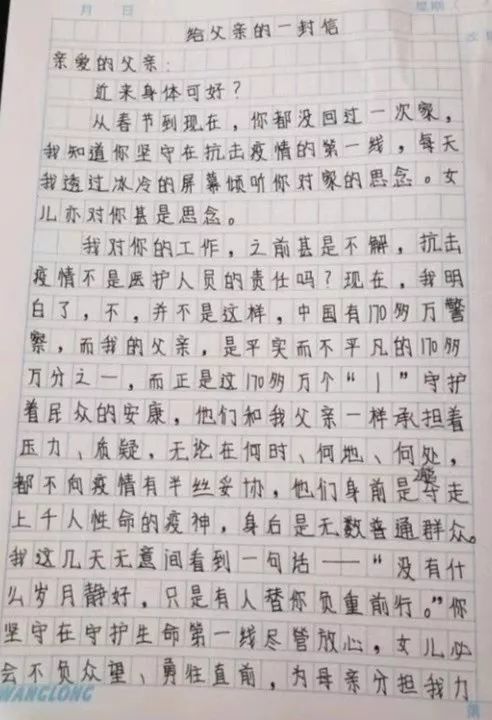 月 日 星期
给父亲的一封信
亲爱的父亲:
近来身体可好?
从春节到现在,你都没回过一次家,
我知道你坚守在抗击疫情的第一线,每天
我透过冰冷的屏幕倾听你对家的思念。女
儿亦对你甚是思念。
我对你的工作,之前甚是不解,抗击
疫情不是医护人员的责任吗?现在,我明
白了,不,并不是这样,中国有170多万警
察,而我的父亲,是平实而不平凡的170多
万分之一,而正是这170多万个“1”守护
着民众的安康,他们和我父亲一样承担着
压力、质疑,无论在何时、何地、何处,
都不向疫情有半丝妥协,他们身前是夺走
上千人性命的疫神,身后是无数普通群众。
我这几天无意间看到一句话——“没有什
么岁月静好,只是有人替你负重前行。”你
坚守在守护生命第一线尽管放心,女儿必
会不负众望、勇往直前,为母亲分担我力
WANGLONG
第